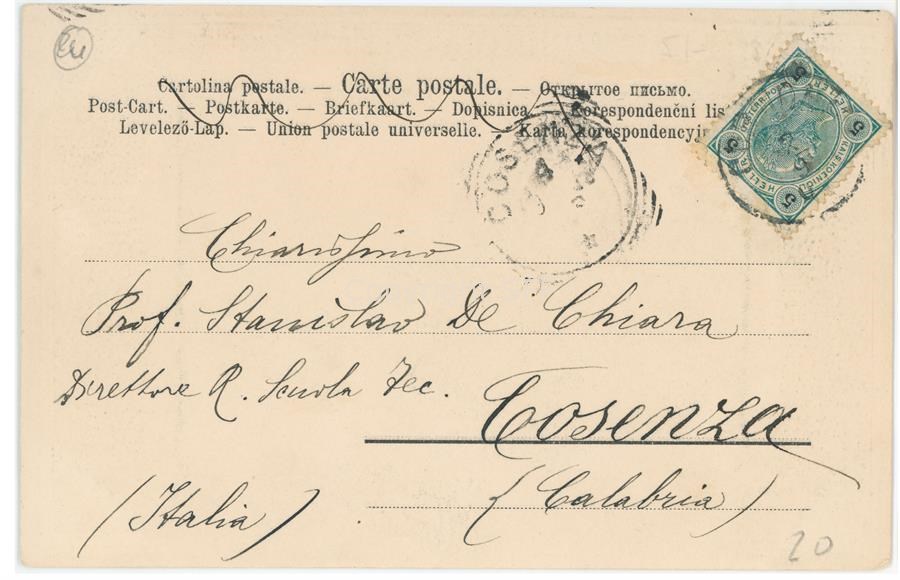 Cartolina postale. — Carte postale. — Открытое письмо.
Post-Cart. — Postkarte. — Briefkaart. — Dopisnica — Korespondenční lis
Levelező-Lap. — Union postale universelle. — Karta korespondencyj
COSENZA
5 5 5 5
HELLER HELLER
KAIS. KOENIGL.
OESTERR. POST
Chiarissimo
Prof. Stanislao De Chiara
Direttore R. Scuola Tec.
Cosenza
(Italia) (Calabria)
20